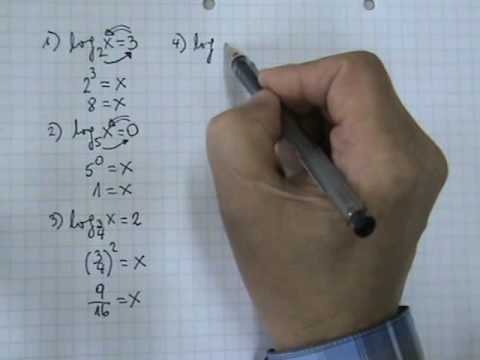 1) log₂x=3
2³=x
8=x
2) log₅x=0
5⁰=x
1=x
3) log_{3/4}x=2
(3/4)²=x
9/16=x
4) log